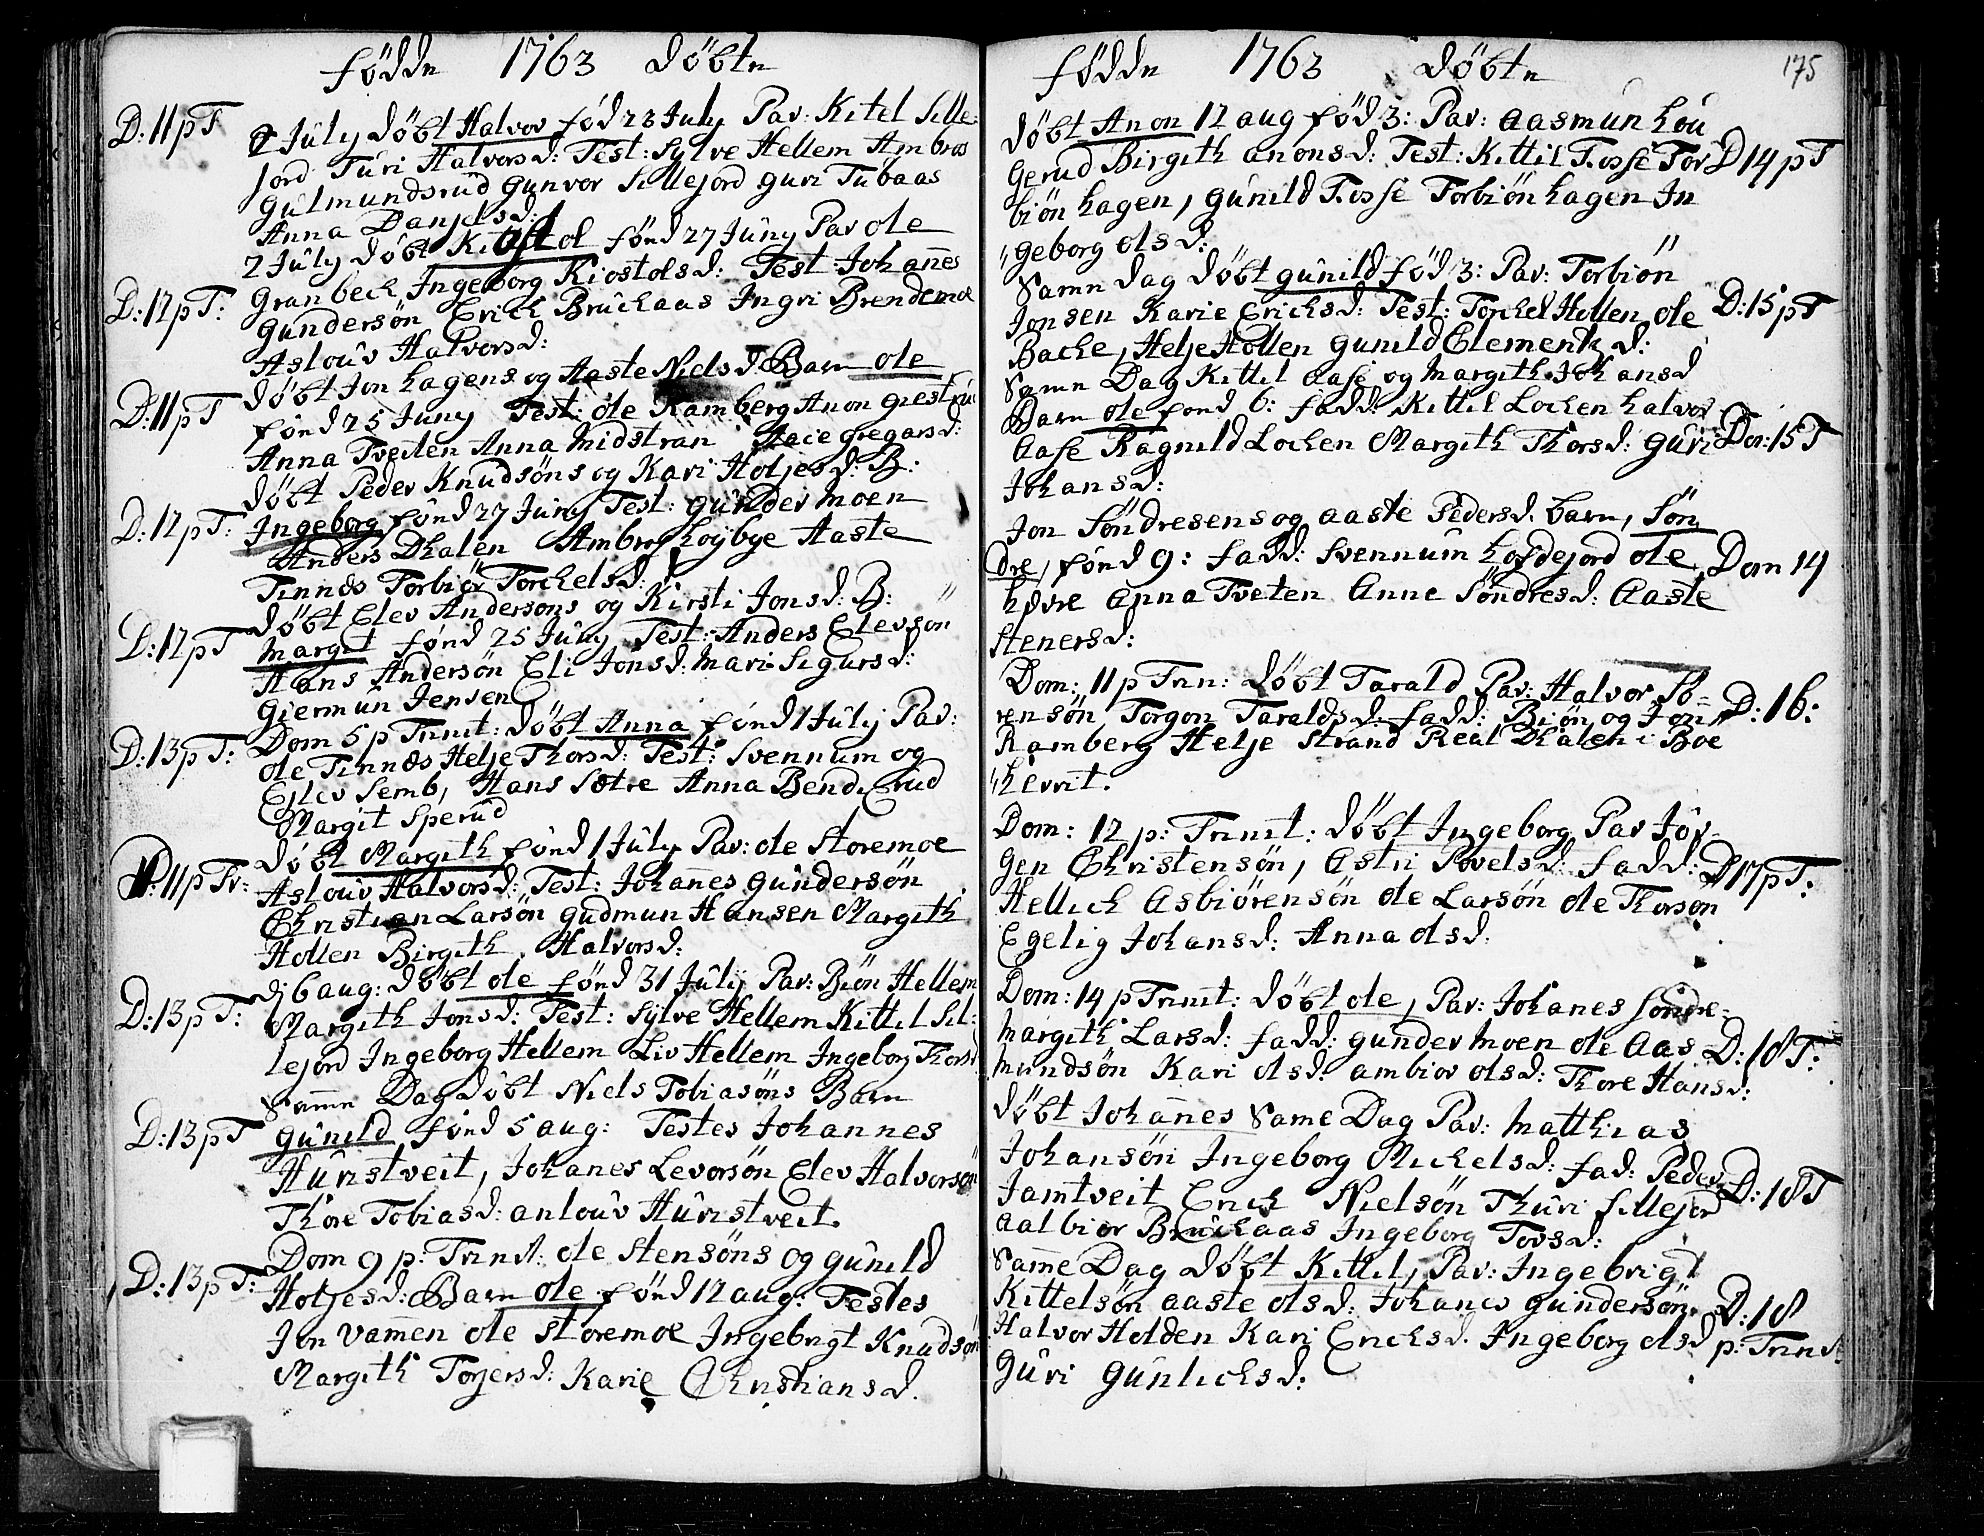 Födde 1763 Döbte
D: 11 p T
2 July Döbt Halvor föd 23 July Pav: Kitel Sille-
jord Turi Halvorsd: Test: Sylve Hellem Ambros
Gulmundsrud Gunvor Sillejord Guri Tubaas
Anna Danjelsd:
2 July döbt Kiöstol fönd 27 Juny Pav ole
D: 12 p T:
Granbeck, Ingeborg Kiostolsd: Test: Johanes
Gundersön Erich Bruchaas Ingri Brendemoe
Aslouv Halvorsd:
D: 11 p T
döbt Jon hagens og Aaste Nielsd: Barn ole
fönd 25 Juny Test: ole Ramberg Anon giestrud
Anna Tveiten Anna Midstran Aacie Gregarsd:
döbt Peder Knudsöns og Kari Holjesd: B:
D: 12 p T:
Ingeborg fönd 27 Juny Test: Gunder Moen
Anders Dhalen Ambros höybye Aaste
Tinnes Torbiör Torchelsd:
döbt Elev Andersons og Kirsti Jonsd: B:
D: 12 p T
Margit fönd 25 July Test: Anders Elevson
Hans Andersön Eli Jonsd: Mari Sigursd:
Giermun Jensen
D: 13 p T:
Dom 5 p Trinit: döbt Anna fönd 1 July Pav:
ole Tinnes Helje Thorsd: Test: Svennum og
Ejlev Semb, Hans Sætre Anna Benderud
Margit Sperud
D: 11 p Tr:
Döbt Margith fönd 1 July Pav: ole Storemoe
Aslouv Halvorsd: Test: Johanes Gundersön
Christian Larsön Gudmun Hansen Margith
Hollen Birgith Halvorsd:
D: 13 p T:
dj 6 aug: Döbt ole fönd 31 July Pav: Biön Hellem
Margith Jonsd: Test: Sylve Hellem Kittel Sil-
lejord Ingeborg Hellem Liv Hellem Ingeborg Thorsd
Samme Dag Döbt Niels Tobiasöns Barn
D: 13 p T
Gunild fönd 5 aug: Testes Johannes
Huvistveit, Johanes Levorsön Elev Halvorsön
Thore Tobiasd: anlouv Huvistveit.
D: 13 p T:
Dom 9 p: Trinit: ole Stensöns og Gunild
Holjesd: Barn ole fönd 12 aug: Testes
Jon Vamen ole storemoe Ingebrigt Knudsön
Margith Torjersd: Karie Christiansd.
Födde 1763 Döbte 175
Döbt Anon 12 aug föd 3: Pav: Aasmun hou
Gerud Birgith anonsd: Test: Kittil Fosse Tor
D 14 p T
biön hagen, Gunild Fosse Torbiön hagen In
geborg olsd:
Samme dag döbt gunild föd 3: Pav: Torbiön
Jonsen Karie Erichsd: Test: Torchel Hollen ole
D: 15 p T
Bache, Helje Hollen Gunild Clementsd:
Samme Dag Kittil aase og Margith Johansd
Barn ole fönd 6: fadd: Kittil Lochen halvor
Aase Ragnild Lochen Margith Thorsd: Guri
Do: 15 T
Johansd:
Jon Söndresens og aaste Pedersd. barn, Sön
dre, fönd 9: fadd: Svennum hofdejord ole
Dom 14
hovre Anna Tveten Anne Söndresd: Aaste
Stenersd:
Dom: 11 p Trin: Döbt Tarald Pav: Halvor Sö-
rensön Torgon Taraldsd: fadd: Biön og Jon
D: 16:
Ramberg Helje Strand Real Dhalen i Boe
hervit.
Dom: 12 p: Trinit: döbt Ingeborg Pav Jör-
gen Christensön, Astri Povelsd: fadd:
D 17 p T:
Hellich Asbiörensön ole Larsön ole Thorson
Egelig Johansd: Anna olsd.
Dom: 14 p Trinit: Döbt ole, Pav: Johanes Sondre-
Margith Larsd: fadd: Gunder Moen ole Aas
D: 18 T:
mundsön Kari olsd: ambior olsd: Thore Hansd:
döbt Johannes Same Dag Pav: Matthias
Johansön Ingeborg Michelsd: fad: Peder
Jamtveit Erich Nielsön Thuri Sillejord
D: 18 T
aalbior Bruchaas Ingeborg Tovsd:
Samme Dag Döbt Kittil, Pav: Ingebrigt
Kittelsön aaste olsd: Johanes Gundersön
D: 18
Halvor Holden Kari Erichsd. Ingeborg olsd
p: Trinit
Guri Gunlichsd: